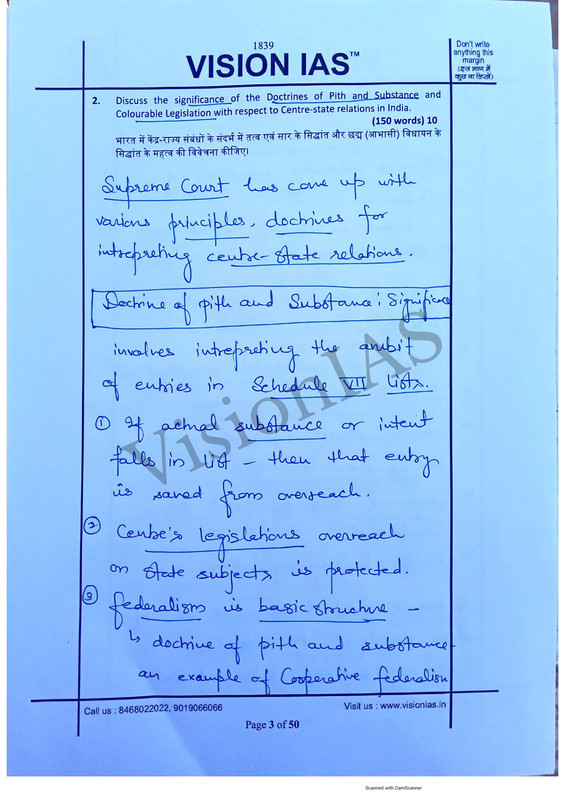 1839
VISION IAS™
Don't write
anything this
margin
(इस भाग में
कुछ ना लिखें)
2. Discuss the significance of the Doctrines of Pith and Substance and
Colourable Legislation with respect to Centre-state relations in India.
(150 words) 10
भारत में केंद्र-राज्य संबंधों के संदर्भ में तत्व एवं सार के सिद्धांत और छद्म (आभासी) विधायन के
सिद्धांत के महत्व की विवेचना कीजिए।
Supreme Court has come up with
various principles, doctrines for
intrepreting centre-state relations.
Doctrine of pith and Substance: Significance
involves intrepreting the ambit
of entries in Schedule VII lists.
① If actual substance or intent
falls in list – then that entry
is saved from overreach.
② Centre's legislations overreach
on state subjects is protected.
③ federalism is basic structure –
↳ doctrine of pith and substance
an example of Cooperative federalism
VisionIAS
Call us : 8468022022, 9019066066
Visit us : www.visionias.in
Page 3 of 50
Scanned with CamScanner